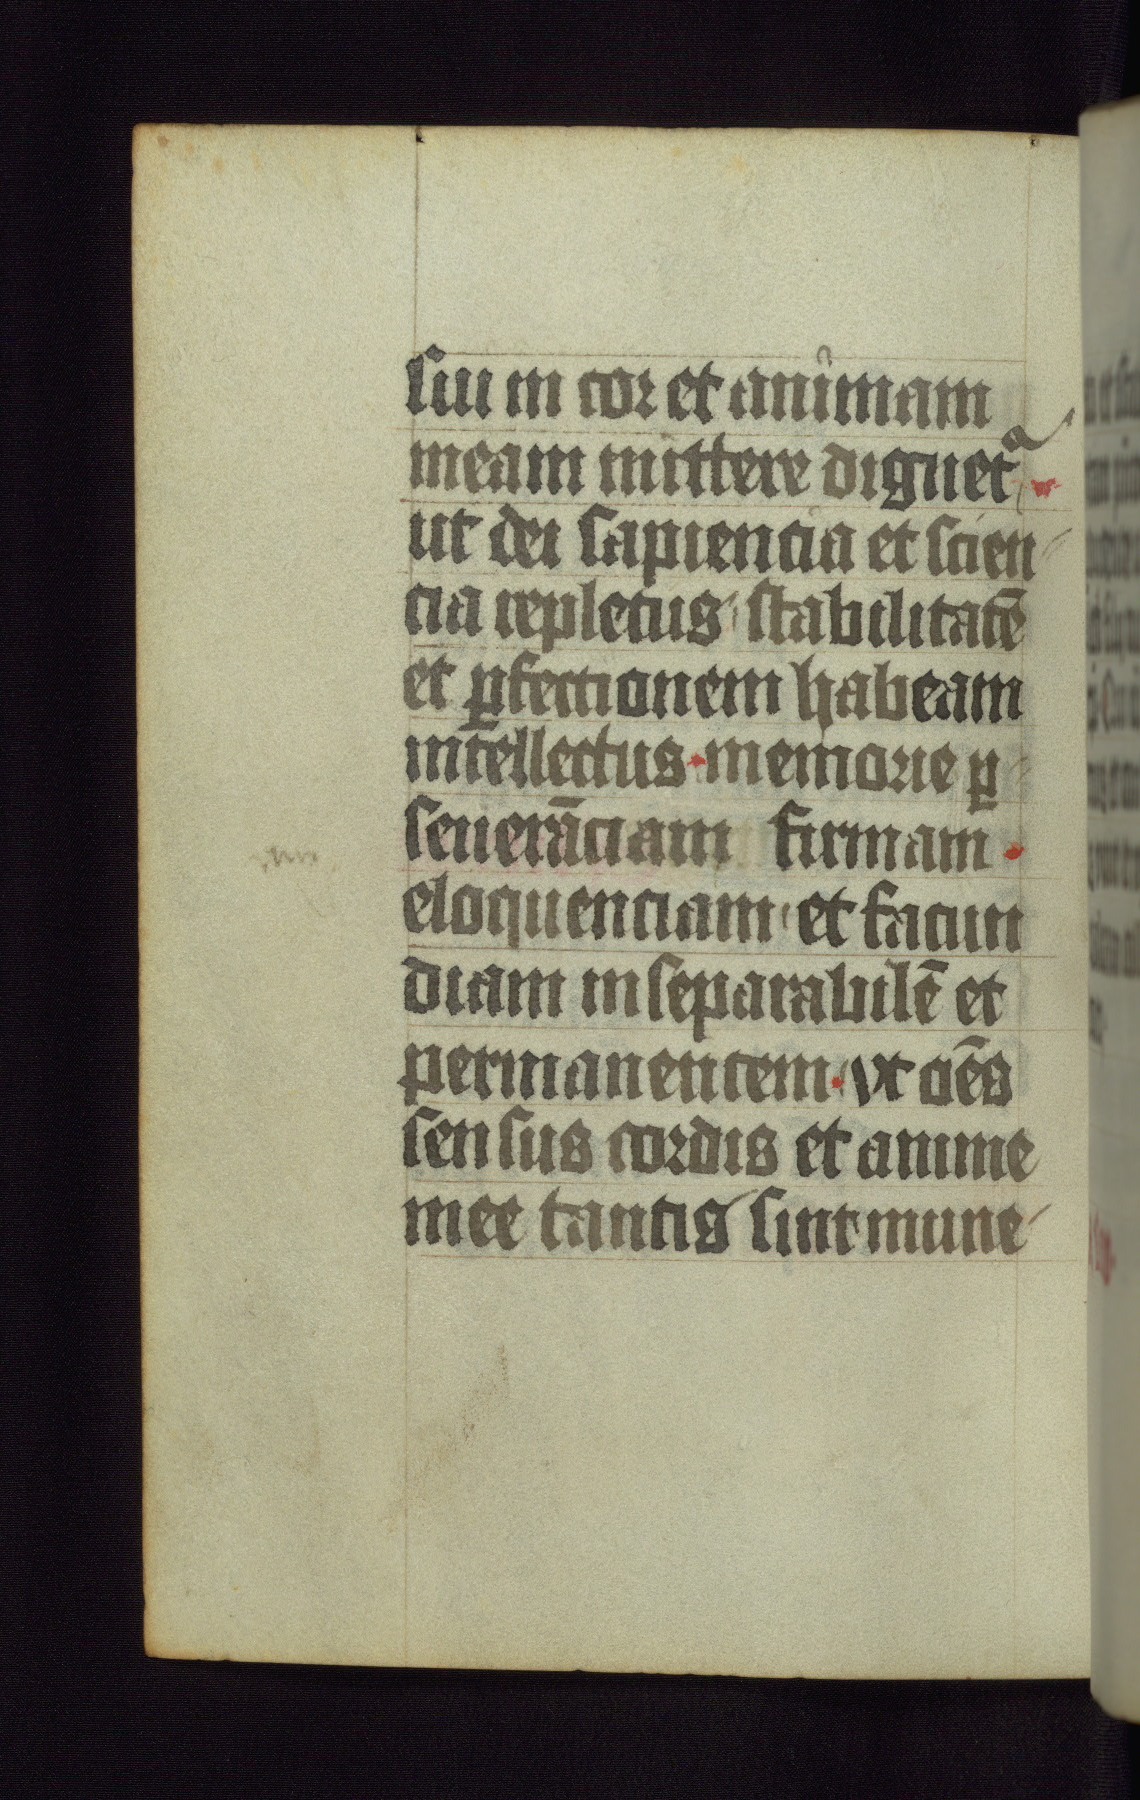 sui in cor et animam
meam mittere dignet᷑
ut dei sapiencia et scien
cia repletus stabilitatē
et ꝑfectionem habeam
intellectus · memorie ꝑ
seuerāciam firmam ·
eloquenciam et facun
diam inseparabilē et
permanentem · vt oēs
sensus cordis et anime
mee tantis sint mune